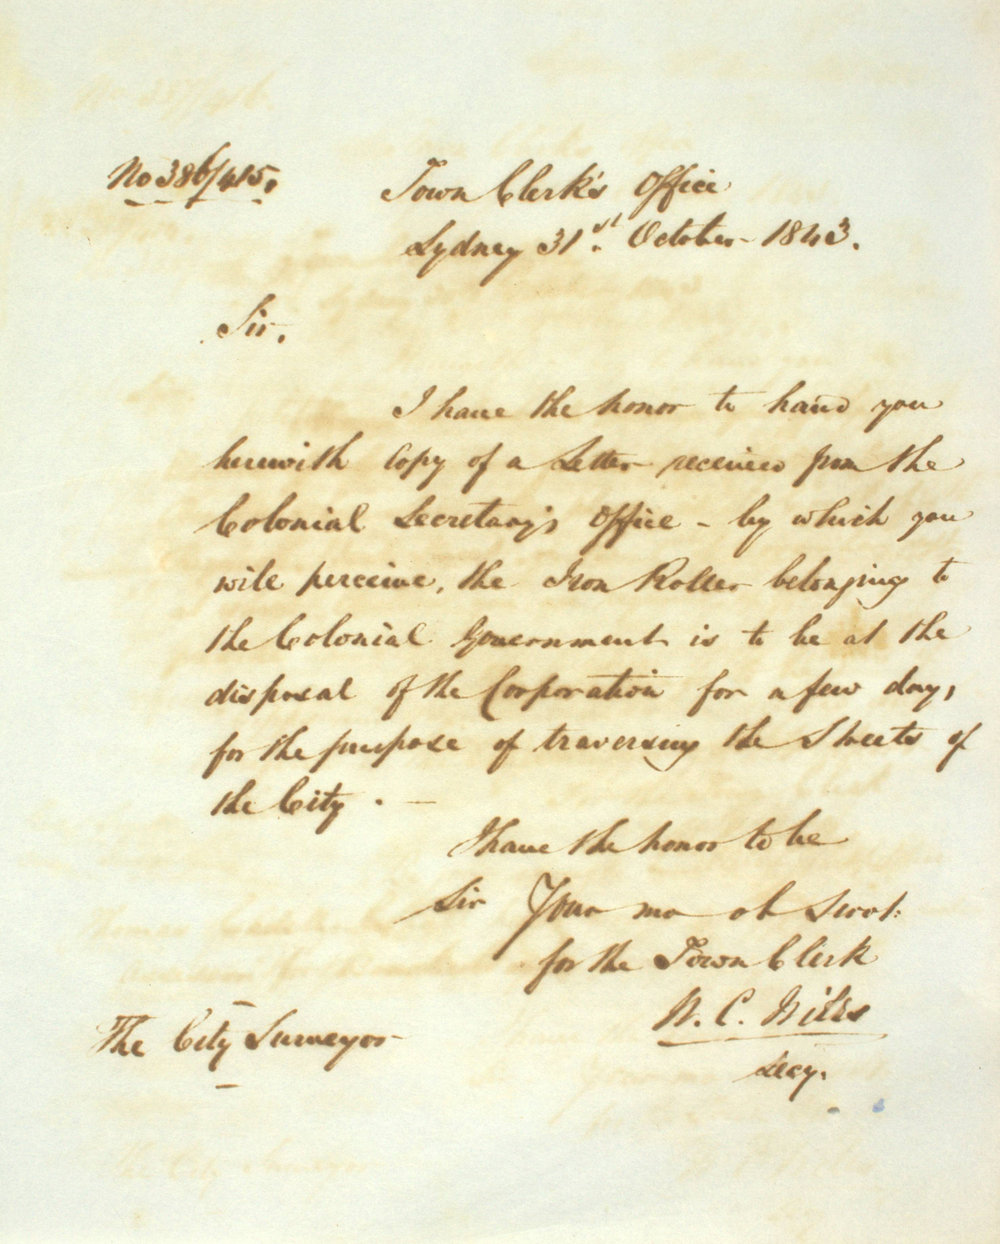 No 386/415.
Town Clerk's Office
Sydney 31st. October 1843.
Sir,
I have the honor to hand you
herewith Copy of a Letter received from the
Colonial Secretary's Office - by which you
will perceive, the Iron Roller belonging to
the Colonial Government is to be at the
disposal of the Corporation for a few days,
for the purpose of traversing the Streets of
the City. -
I have the honor to be
Sir Your mo ob Servt:
for the Town Clerk
W. C. Wills
Secy.
The City Surveyor